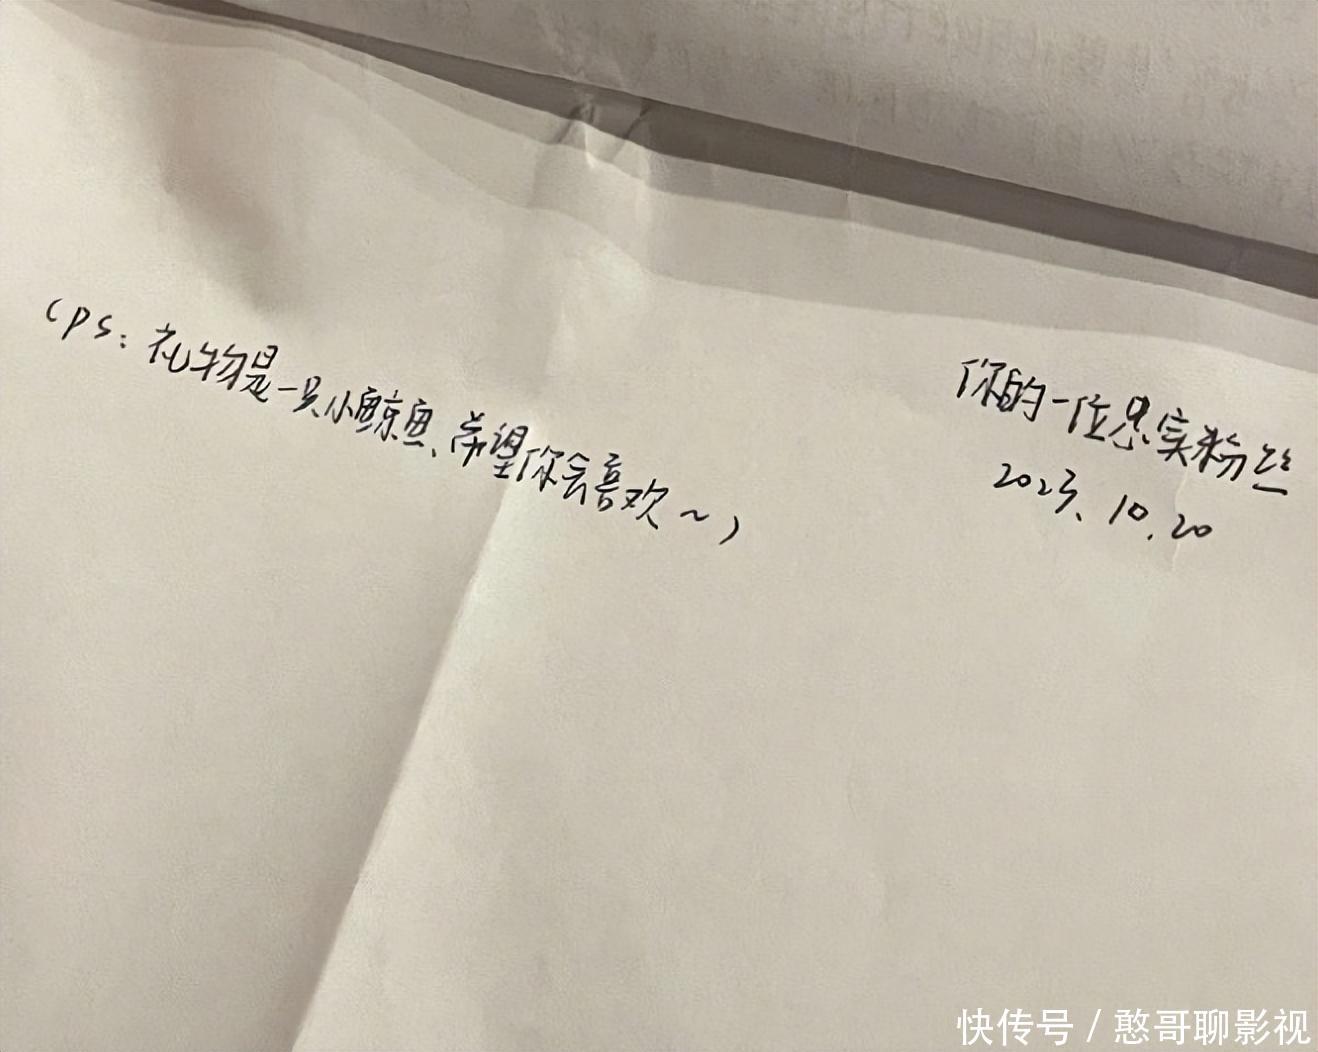 你的一位忠实粉丝
2023.10.20
(ps:礼物是一只小鲸鱼,希望你会喜欢~)
快传号/憨哥聊影视